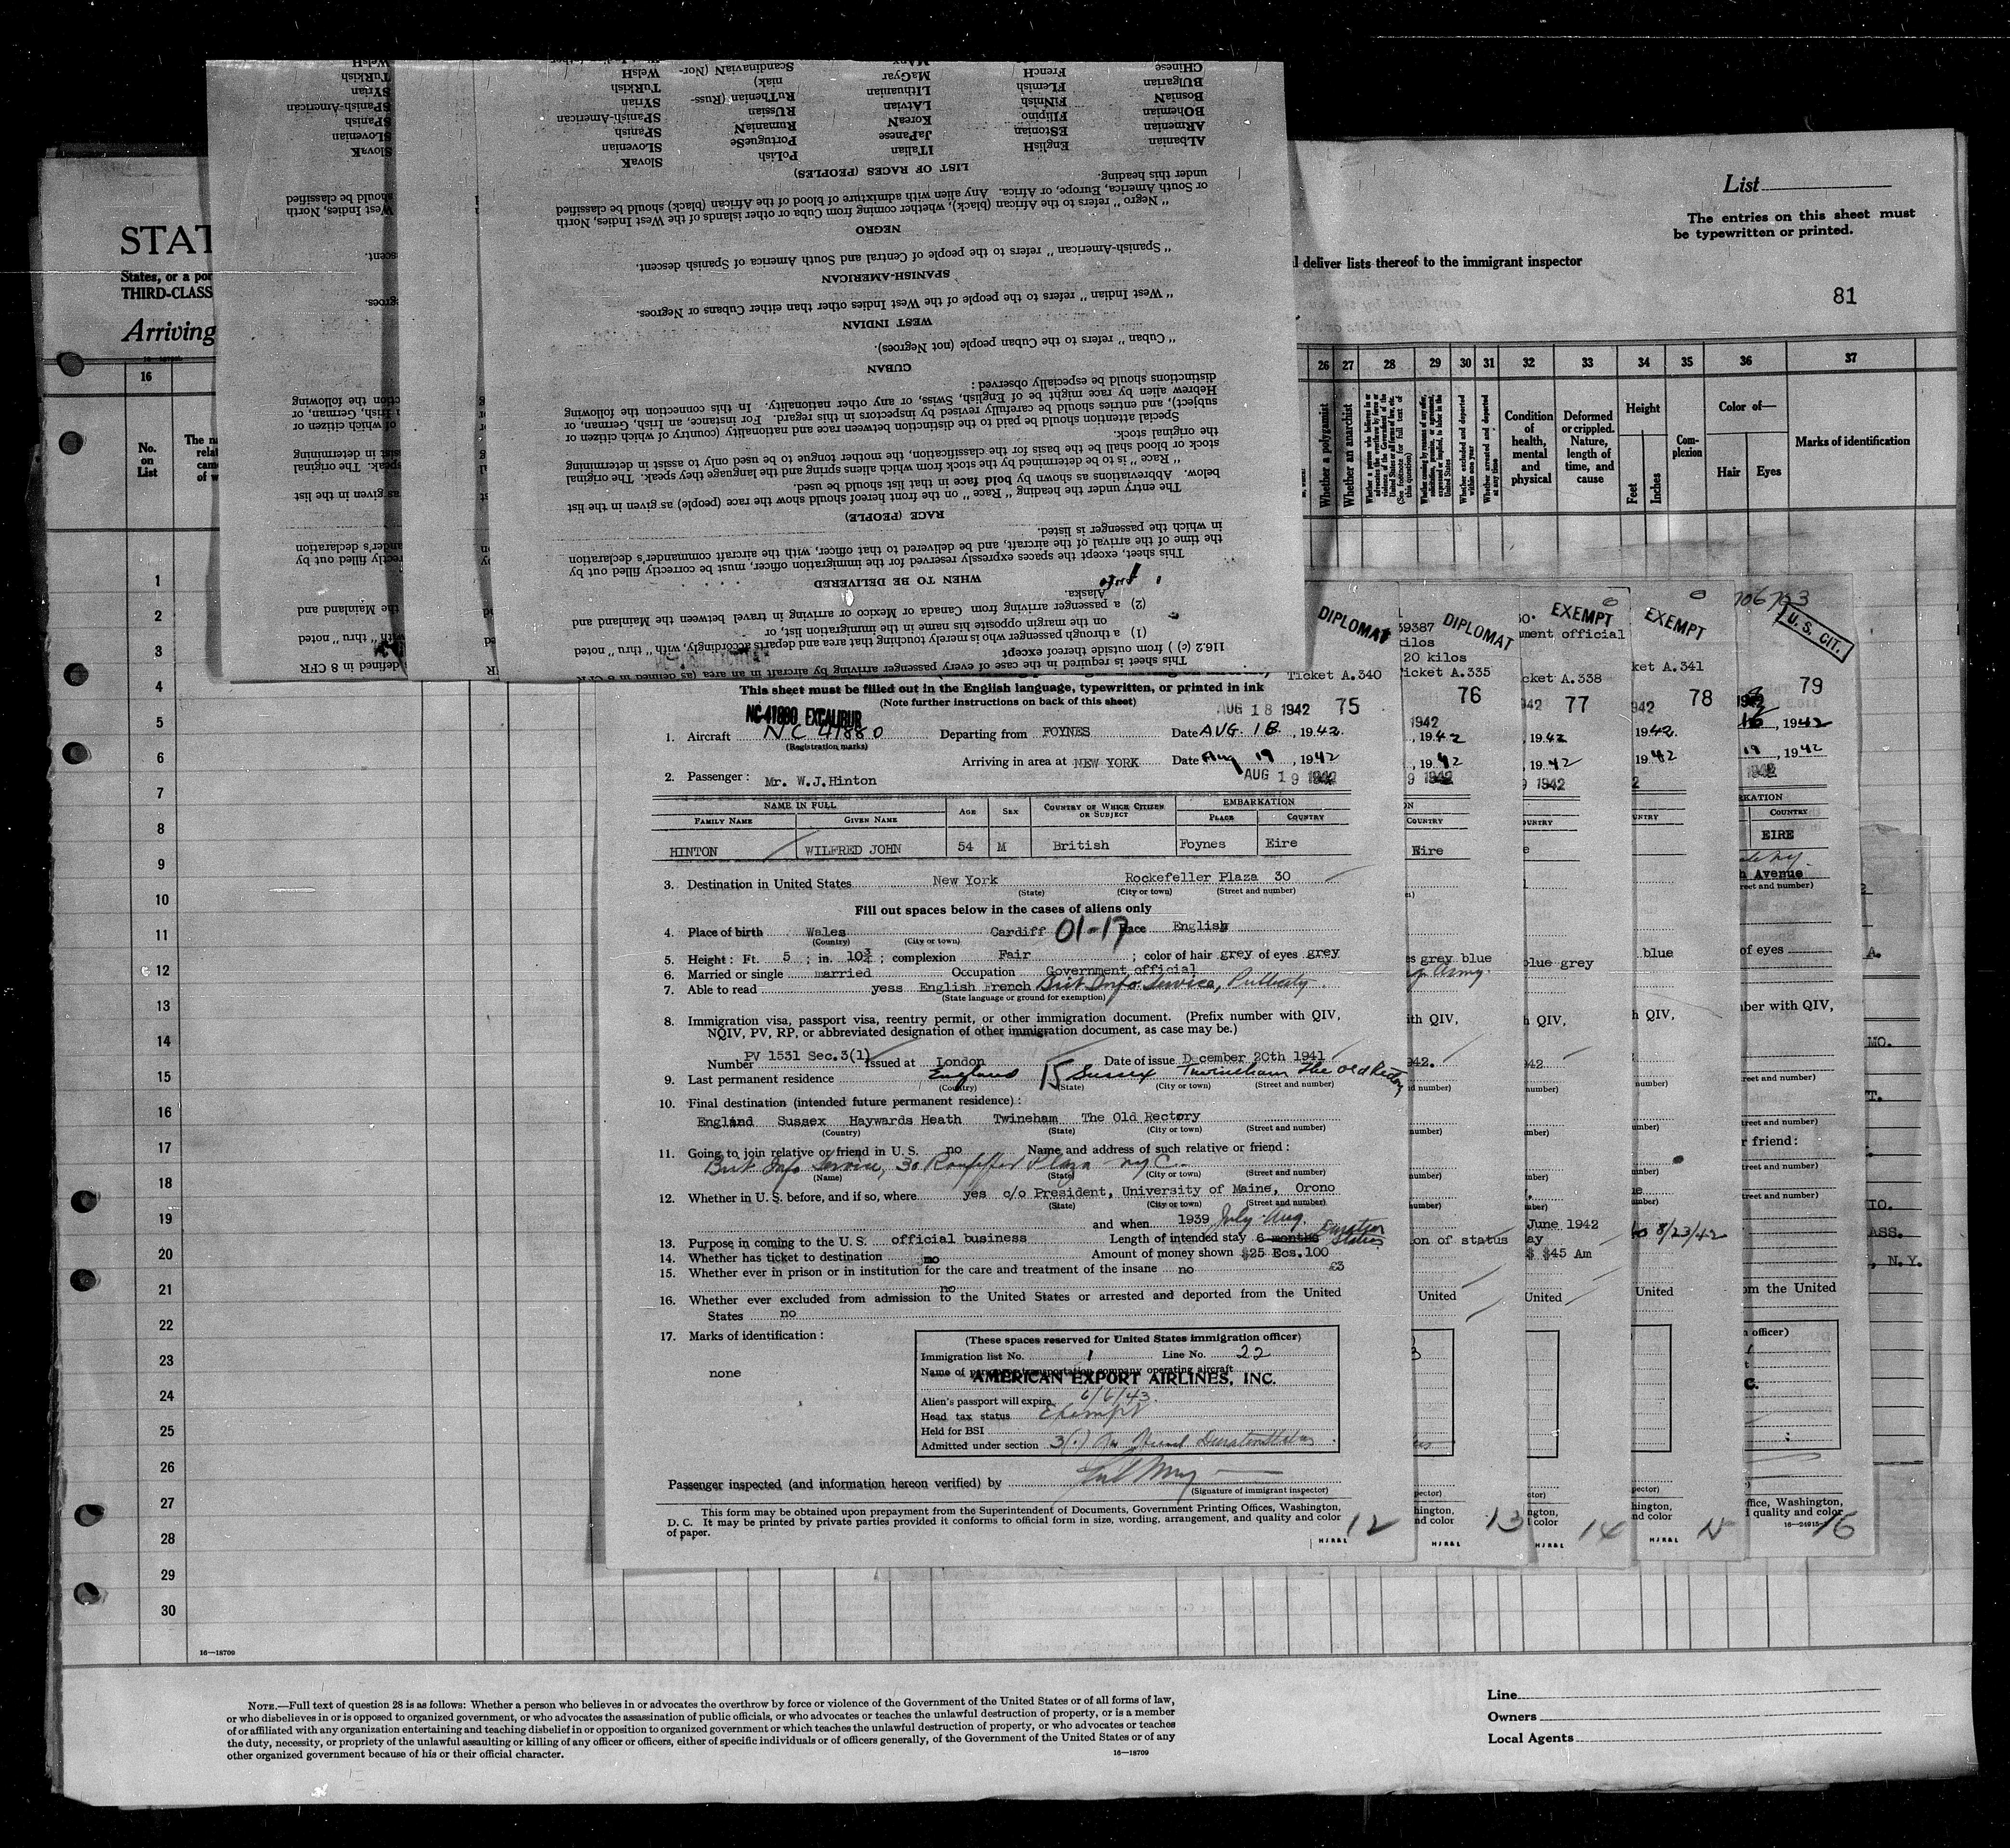 List
The entries on this sheet must
be typewritten or printed.
STAT
States, or a por
THIRD-CLASS
Arriving
l deliver lists thereof to the immigrant inspector
81
16
No.
on
List
26 27 28 29 30 31 32 33 34 35 36 37
Whether a polygamist
Whether an anarchist
Condition
of
health,
mental
and
physical
Deformed
or crippled.
Nature,
length of
time, and
cause
Height
Feet
Inches
Com-
plexion
Color of—
Hair
Eyes
Marks of identification
1
2
3
4
5
6
7
8
9
10
11
12
13
14
15
16
17
18
19
20
21
22
23
24
25
26
27
28
29
30
16—18709
This sheet is required in the case of every passenger arriving by aircraft in an area (as defined in 8 CFR
116.2 (c) ) from outside thereof except
(1) a through passenger who is merely touching that area and departs accordingly, with "thru" noted
on the margin opposite his name in the immigration list, or
(2) a passenger arriving from Canada or Mexico or arriving in travel between the Mainland and
Alaska.
WHEN TO BE DELIVERED
This sheet, except the spaces expressly reserved for the immigration officer, must be correctly filled out by
the time of the arrival of the aircraft, and be delivered to that officer, with the aircraft commander's declaration
in which the passenger is listed.
RACE (PEOPLE)
The entry under the heading "Race" on the front hereof should show the race (people) as given in the list
below. Abbreviations as shown by bold face in that list should be used.
"Race" is to be determined by the stock from which aliens spring and the language they speak. The original
stock or blood shall be the basis for the classification, the mother tongue to be used only to assist in determining
the original stock.
Special attention should be paid to the distinction between race and nationality (country of which citizen or
subject), and entries should be carefully revised by inspectors in this regard. For instance, an Irish, German, or
Hebrew alien by race might be of English, Swiss, or any other nationality. In this connection the following
distinctions should be especially observed:
CUBAN
"Cuban" refers to the Cuban people (not Negroes).
WEST INDIAN
"West Indian" refers to the people of the West Indies other than either Cubans or Negroes.
SPANISH-AMERICAN
"Spanish-American" refers to the people of Central and South America of Spanish descent.
NEGRO
"Negro" refers to the African (black), whether coming from Cuba or other islands of the West Indies, North
or South America, Europe, or Africa. Any alien with admixture of blood of the African (black) should be classified
under this heading.
LIST OF RACES (PEOPLES)
ALbanian EnglisH ITalian PoLish SlovaK
ARmenian EStonian JaPanese PortugueSe SLovenian
BOhemian FIlipino KoreaN RumaniaN SPanish
BosniaN FiNnish LAtvian RUssian SPanish-American
BUlgarian FLemish LIthuanian RuThenian (Russ- SYrian
CHinese FrencH MaGyar niak) TuRkish
ScandinaviaN (Nor- WelsH
DIPLOMAT
Ticket A.340
This sheet must be filled out in the English language, typewritten, or printed in ink
(Note further instructions on back of this sheet)
AUG 18 1942 75
NC-41880 EXCALIBUR
1. Aircraft NC 41880 Departing from FOYNES Date AUG. 18, 1942
(Registration marks)
Arriving in area at NEW YORK Date Aug 19, 1942
AUG 19 1942
2. Passenger: Mr. W.J.Hinton
NAME IN FULL
FAMILY NAME GIVEN NAME AGE SEX COUNTRY OF WHICH CITIZEN OR SUBJECT EMBARKATION
PLACE COUNTRY
HINTON WILFRED JOHN 54 M British Foynes Eire
3. Destination in United States New York Rockefeller Plaza 30
(State) (City or town) (Street and number)
Fill out spaces below in the cases of aliens only
4. Place of birth Wales Cardiff 01-17 Race English
(Country) (City or town)
5. Height: Ft. 5; in. 10¾; complexion Fair; color of hair grey of eyes grey
6. Married or single married Occupation Government official
7. Able to read yess English French Brit Info Service,
(State language or ground for exemption)
8. Immigration visa, passport visa, reentry permit, or other immigration document. (Prefix number with QIV,
NQIV, PV, RP, or abbreviated designation of other immigration document, as case may be.)
Number PV 1531 Sec.3(1) Issued at London Date of issue December 20th 1941
9. Last permanent residence England 15 Sussex Twineham The Old Rectory
(Country) (State) (City or town) (Street and number)
10. Final destination (intended future permanent residence):
England Sussex Haywards Heath Twineham The Old Rectory
(Country) (State) (City or town) (Street and number)
11. Going to join relative or friend in U. S. no Name and address of such relative or friend:
Brit Info Service, 30 Plaza NYC.
(Name) (State) (City or town) (Street and number)
12. Whether in U. S. before, and if so, where yes c/o President, University of Maine, Orono
(State) (City or town) (Street and number)
and when 1939 July-Aug.
13. Purpose in coming to the U. S. official business Length of intended stay 6 months Duration Status
14. Whether has ticket to destination no Amount of money shown $25 Ecs.100
£3
15. Whether ever in prison or in institution for the care and treatment of the insane no
no
16. Whether ever excluded from admission to the United States or arrested and deported from the United
States no
17. Marks of identification:
none
(These spaces reserved for United States immigration officer)
Immigration list No. 1 Line No. 22
AMERICAN EXPORT AIRLINES, INC.
Alien's passport will expire 6/6/43
Head tax status Exempt
Held for BSI
Admitted under section 3(1)
Passenger inspected (and information hereon verified) by
(Signature of immigrant inspector)
This form may be obtained upon prepayment from the Superintendent of Documents, Government Printing Offices, Washington,
D. C. It may be printed by private parties provided it conforms to official form in size, wording, arrangement, and quality and color
of paper.
12
DIPLOMAT
59387
kilos
20 kilos
ticket A.335
76
1942
Eire
grey blue
Army.
on of status
United
13
EXEMPT
ment official
cket A.338
77
blue grey
June 1942
$ $45 Am
United
14
EXEMPT
ket A.341
78
blue
to 8/23/42
United
U. S. CIT.
79
COUNTRY
EIRE
h Avenue
of eyes
ber with QIV,
r friend:
om the United
officer)
ffice, Washington,
quality and color
16—24915-
16
A.
MO.
T.
TO.
ASS.
, N.Y.
NOTE.—Full text of question 28 is as follows: Whether a person who believes in or advocates the overthrow by force or violence of the Government of the United States or of all forms of law,
or who disbelieves in or is opposed to organized government, or who advocates the assassination of public officials, or who advocates or teaches the unlawful destruction of property, or is a member
of or affiliated with any organization entertaining and teaching disbelief in or opposition to organized government or which teaches the unlawful destruction of property, or who advocates or teaches
the duty, necessity, or propriety of the unlawful assaulting or killing of any officer or officers, either of specific individuals or of officers generally, of the Government of the United States or of any
other organized government because of his or their official character.
16—18709
Line
Owners
Local Agents